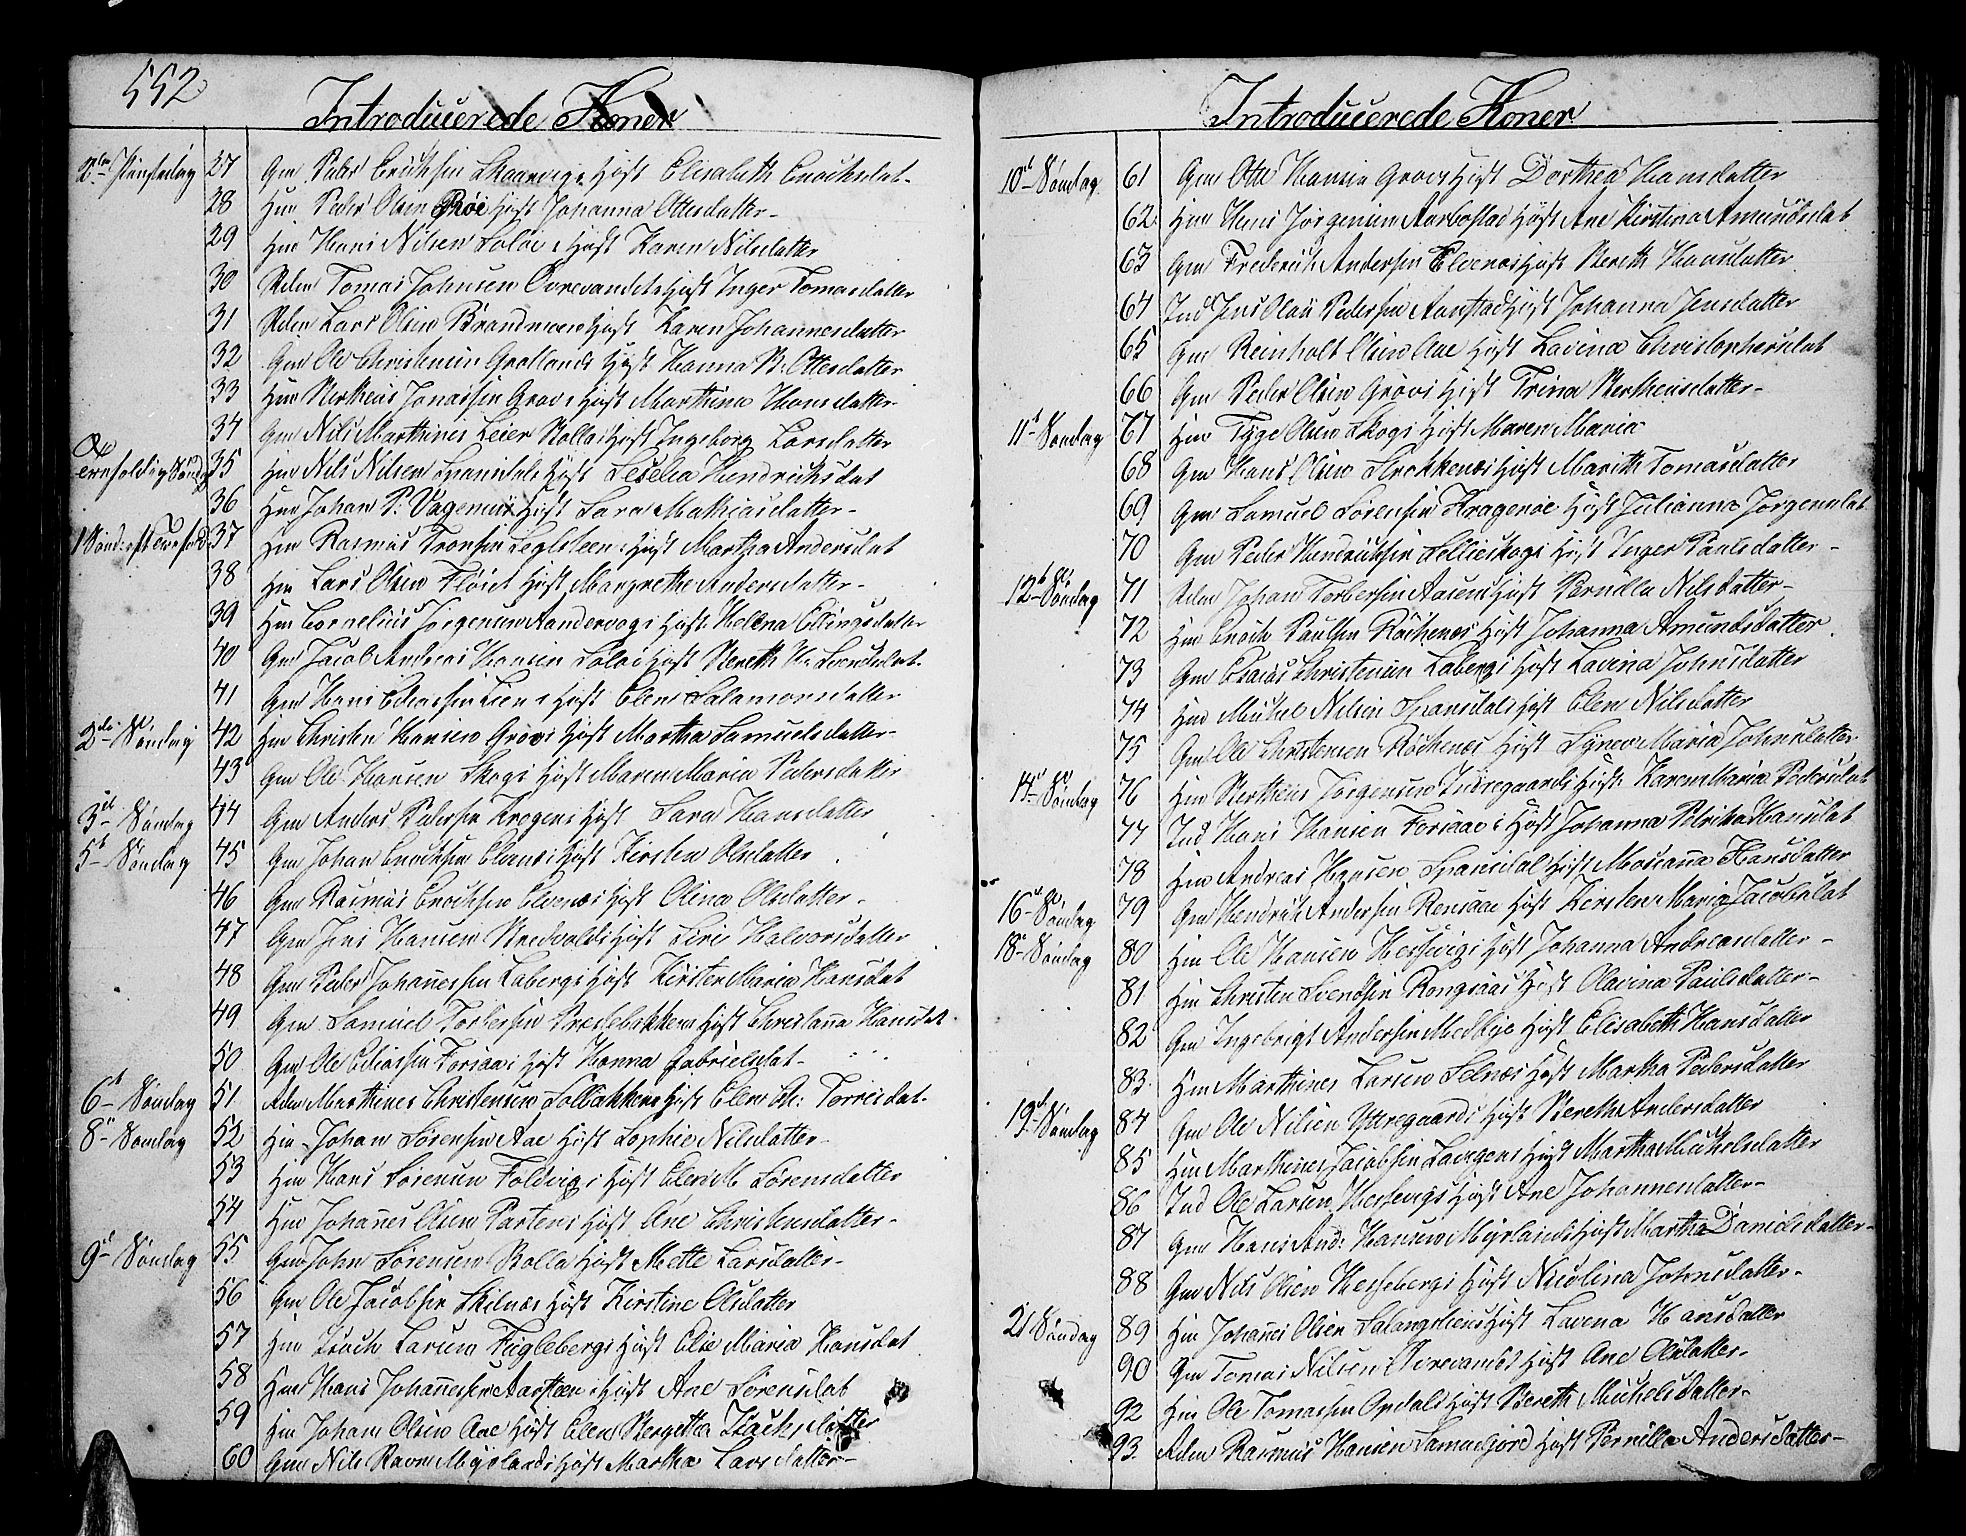 552
Introducerede Koner
2den Pinstedag 27 Gm Peder Enochsen Skaarvigs Hust Elisabeth Enochsdat-
28 Hm Peder Olsen Röe Hust Johanna Ottesdatter-
29 Hm Hans Nilsen Soløe Hust Karen Nilsdatter
30 Adm Tomas Johnsen Övrevandets Hust Inger Tomasdatter
31 Adm Lars Olsen Brandmoens Hust Karen Johannesdatter
32 Gm Ole Christensen Grotlands Hust Hanna B: Ottesdatter
33 Hm Bertheus Jonassen Grovs Hust Marthina Hansdatter-
34 Gm Nils Marthines Leier Rolla Hust Ingeborg Larsdatter
Trefoldig Sønd 35 Hm Nils Nilsen Spansdals Hust Seselia Hendriksdat
36 Hm Johan P: Hust Sara Mathiasdatter-
1 Sønd: eft Trefold 37 Hm Rasmus Tronsen Hust Martha Andersdat
38 Hm Lars Olsen Hust Margrethe Andersdatter-
39 Hm Cornelius Jørgensen Aandervogs Hust Helena Ellingsdatter
40 Gm Jacob Andreas Hansen Soløe Hust Bereth H: Svendsdat-
41 Gm Hans Eliassen Liens Hust Elen Salamonsdatter
2den Søndag 42 Hm Christen Hansen Grovs Hust Martha Samuelsdatter-
43 Gm Ole Hansen Skogs Hust Maren Maria Pedersdatter
3de Søndag 44 Gm Anders Pedersen Krogens Hust Sara Hansdatter
5te Søndag 45 Gm Johan Enochsen Elvenes Hust Kirsten Olsdatter
46 Gm Rasmus Enochsen Elvenes Hust Olina Olsdatter-
47 Gm Jens Hansen Bredvolds Hust Siri Halvorsdatter
48 Gm Peder Johannessen Labergs Hust Kirsten Maria Hansdat
49 Gm Samuel Torbersen Prestebakkens Hust Christanna Hansdat
50 Gm Ole Eliassen Forsaas Hust Hanna Gabrielsdat-
6te Søndag 51 Adm Marthines Christensen Solbakkens Hust Elen Ch: Torrisdat-
8de Søndag 52 Hm Johan Sørensen Aae Hust Sophie Nilsdatter-
53 Hm Hans Sørensen Foldvigs Hust Elen M Sørensdatter
54 Hm Johanes Olsen Partens Hust Ane Christensdatter-
9de Søndag 55 Gm John Sørensen Rolla Hust Mette Larsdatter-
56 Gm Ole Jacobsen Skilnæs Hust Kirstine Olsdatter
57 Hm Isach Larsen Fuglebergs Hust Else Maria Hansdat
58 Hm Hans Johannessen Aarsteens Hust Ane Sörensdat
59 Hm Johan Olsen Aae Hust Elen Bergetta Isachsdatter
60 Gm Nils Ravn Myrlands Hust Martha Larsdatter-
Introducerede Koner
10de Søndag 61 Gm Otte Hansen Grovs Hust Dorthea Hansdatter
62 Hm Hans Jørgensen Aarbostad Hust Ane Kirstina Amundsdat
63 Gm Frederik Andersen Elvenes Hust Bereth Hansdatter
64 Ind Jens Olai Pedersen Aanstad Hust Johanna Jensdatter
65 Gm Reinholt Olsen Aae Hust Lavina Christophersdat
66 Gm Peder Olsen Grøvs Hust Trina Bertheusdatter-
11te Søndag 67 Hm Tyge Olsen Skogs Hust Maren Maria
68 Gm Hans Olsen Strokkenæs Hust Marith Tomasdatter
69 Gm Samuel Sørensen Kragenæe Hust Julianna Jørgensdat
70 Gm Peder Hendriksen Sollieskogs Hust Inger Paulsdatter-
12te Søndag 71 Adm Johan Torbersen Aasens Hust Pernilla Nilsdatter-
72 Hm Enoch Paulsen Röchenæs Hust Johanna Amundsdatter
73 Gm Esaias Christensen Labergs Hust Lavina Johnsdatter
74 Hm Michel Nilsen Spansdals Hust Elen Nilsdatter
75 Gm Ole Christensen Röchenæs Hust Synev Maria Johnsdatter
14de Søndag 76 Hm Bertheus Jørgensen Indregaards Hust Karen Maria Pedersdat
77 Ind Hans Hansen Forsaaes Hust Johanna Petrika Hansdat
78 Hm Andreas Hansen Spansdal Hust Mosianna Hansdatter
16de Søndag 79 Gm Hendrik Andersen Rensaae Hust Kirsten Maria Jacobsdat
18de Søndag 80 Hm Ole Hansen Hesseviigs Hust Johanna Andreasdatter-
81 Hm Christen Svendsen Rongsaas Hust Olavina Paulsdatter-
82 Gm Ingebrigt Andersen Medbye Hust Elisabeth Hansdatter
83 Hm Marthines Larsen Selnæs Hust Martha Pedersdatter
19de Søndag 84 Gm Ole Nilsen Yttregaards Hust Bereth Andersdatter
85 Hm Marthines Jacobsen Lavgens Hust Martha Michelsdatter
86 Ind Ole Larsen Hessevigs Hust Ane Johannesdatter-
87 Gm Hans And: Hansen Myrlands Hust Martha Danielsdatter-
88 Gm Nils Olsen Hessebergs Hust Nicolina Johnsdatter-
21 Søndag 89 Hm Johannes Olsen Salangsliens Hust Lavina Hansdatter
90 Gm Tomas Nilsen Övrevandet Hust Ane Olsdatter-
92 Hm Ole Tomassen Opdals Hust Bereth Michelsdatter-
93. Adm Rasmus Hansen Hust Pernilla Andersdatter-